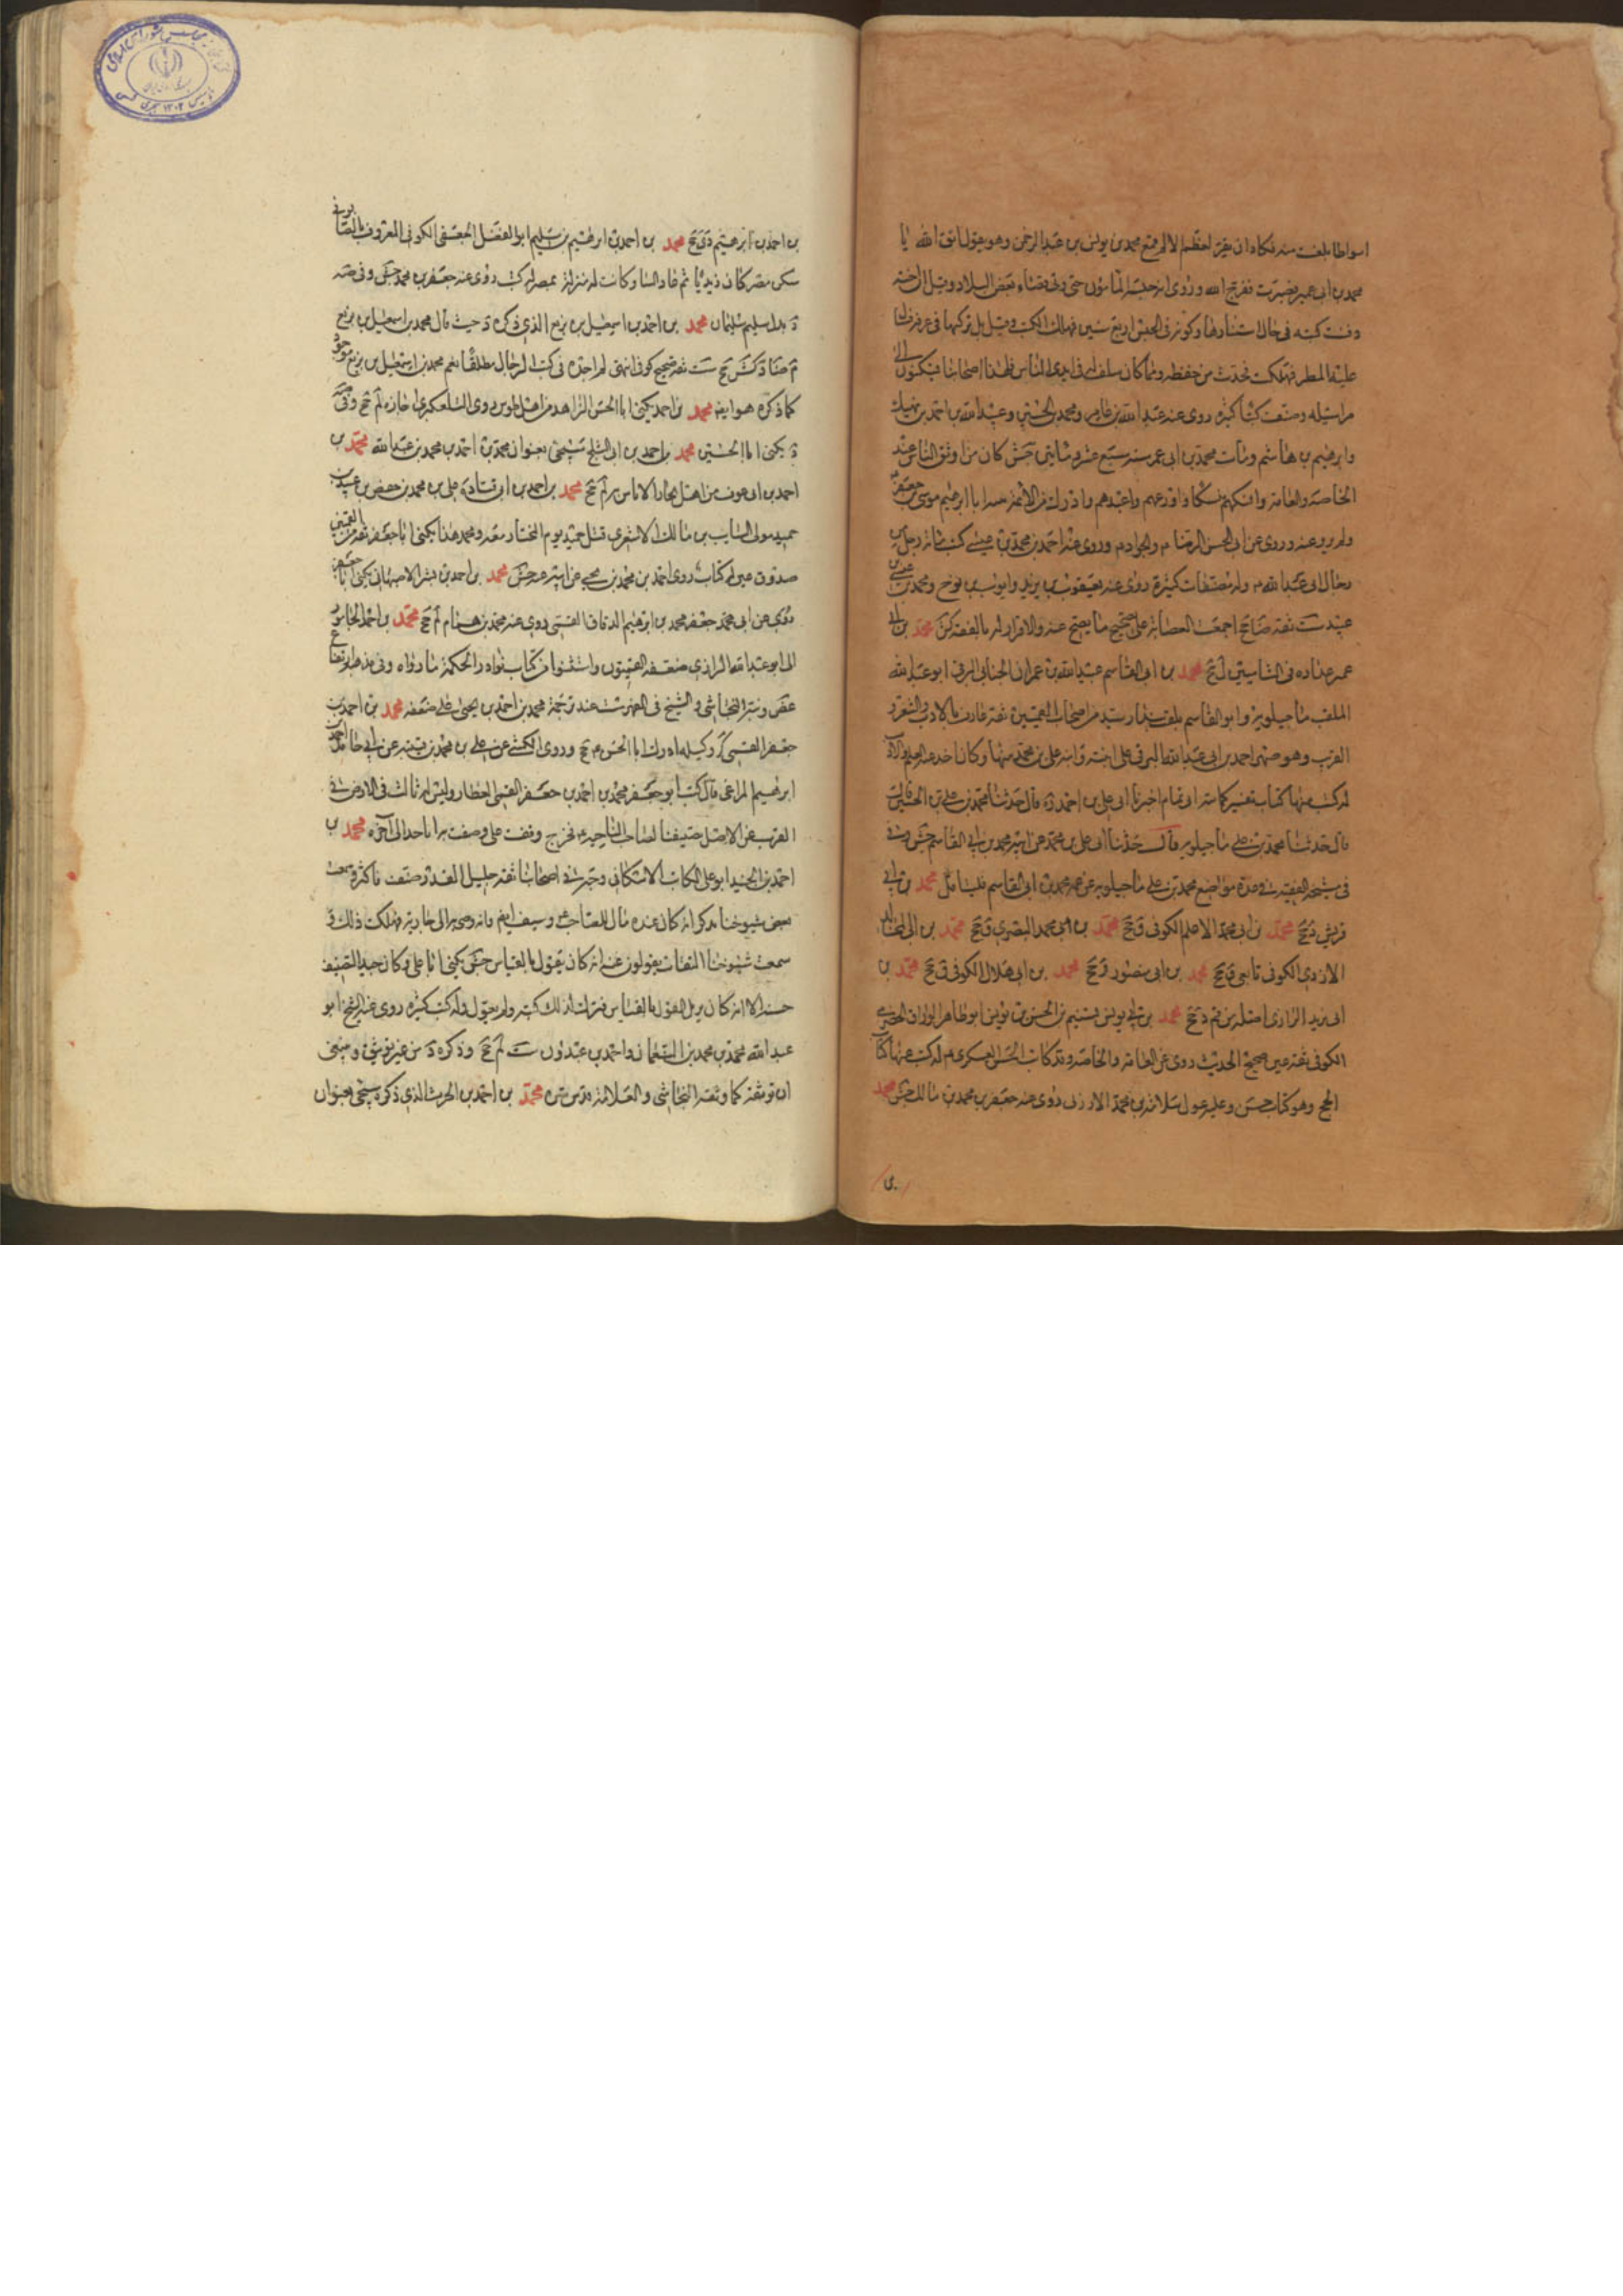 اسواطا بلغت منه فكاد ان يقر لعظم الالم فسمع محمد بن يونس بن عبد الرحمن وهو يقول اتق الله يا
محمد بن ابى عمير فصبرت ففرج الله وروى انه حبسه المأمون حتى ولاه قضاء بعض البلاد وقيل ان اخته
دفنت كتبه فى حال استتارها وكونه فى الحبس اربع سنين فهلك الكتب وقيل بل تركها فى غرفة فسال
عليه المطر فهلكت فحدث من حفظه ومما كان سلف له فى ايدى الناس فلهذا اصحابنا يسكنون الى
مراسيله وصنف كتبا كثيرة روى عنه عبد الله بن عامر ومحمد بن الحسين وعبيد الله بن احمد بن نهيك
وابرهيم بن هاشم ومات محمد بن ابى عمير سنه سبع عشر ومائتين جش كان من اوثق الناس عند
الخاصة والعامة وانسكهم نسكا واورعهم واعبدهم وادرك من الأئمة ابا ابرهيم موسى بن جعفر
ولم يرو عنه وروى عن ابى الحسن الرضا م والجواد م وروى عنه احمد بن محمد بن عيسى كتب مائة رجل من
رجال ابى عبد الله م وله مصنفات كثيرة روى عنه يعقوب بن يزيد وايوب بن نوح ومحمد بن عيسى بن
عبيد ست ثقة صا جخ اجمعت العصابة على تصحيح ما يصح عنه والاقرار له بالفقه كش محمد بن ابى
عمر عداده فى الشاميين ل جخ محمد بن ابى القاسم عبيد الله بن عمران الجنابى البرقى ابو عبد الله
الملقب ماجيلويه وابو القاسم يلقب بندار سيد من اصحابنا القميين ثقة عارف بالادب والشعر و
الغريب وهو صهر احمد بن ابى عبد الله البرقى على ابنته وابنه على بن محمد منها وكان اخذ عنه العلم والادب
له كتب منها كتاب تفسير حماسة ابى تمام اخبرنا ابى على بن احمد ره قال حدثنا محمد بن على بن الحسين
قال حدثنا محمد بن على ماجيلويه قال حدثنا ابى على بن محمد عن ابيه محمد بن ابى القاسم جش وفى
فى مشيخة الفقيه فى عدة مواضع محمد بن على ماجيلويه عن عمه محمد بن ابى القاسم فليتأمل محمد بن ابى
قريش ق جخ محمد بن ابى محمد الاعلم الكوفى ق جخ محمد بن ابى محمد البصرى ق جخ محمد بن ابى
الازدى الكوفى تابعى ق جخ محمد بن ابى منصور ق جخ محمد بن ابى هلال الكوفى ق جخ محمد بن
ابى زيد الرازى اصله من قم د جخ محمد بن ابى يونس تسنيم بن الحسن بن يونس ابو طاهر الوراق الحضرمى
الكوفى ثقة عين صحيح الحديث روى عن العامة والخاصة وقد كاتب الحسن العسكرى م له كتب منها كتاب
الحج وهو كتاب حسن وعليه عول سلامة بن محمد الارزنى روى عنه جعفر بن محمد بن مالك جش محمد
بن احمد بن ابرهيم دى جخ محمد بن احمد بن ابرهيم بن سليم ابو الفضل الجعفى الكوفى المعروف بالصابونى
سكن مصر كان زيديا ثم عاد الينا وكانت له منزلة بمصر له كتب روى عنه جعفر بن محمد جش وفى ضه
د بدل سليم سليمان محمد بن احمد بن اسمعيل بن بزيع الذى ذكره د حيث قال محمد بن اسمعيل بن بزيع
م ضا د كش جخ ست ثقة صحيح كوفى انتهى لم اجده فى كتب الرجال مطلقا نعم محمد بن اسمعيل بن بزيع موجود
كما ذكره هو ايضا محمد بن احمد يكنى ابا الحسن الزاهد من اهل طوس روى التلعكبرى اجازه لم جخ وفى
د يكنى ابا الحسين محمد بن احمد بن ابى الثلج سيجئ بعنوان محمد بن احمد بن محمد بن عبد الله محمد بن
احمد بن ابى عوف من اهل بخارا لا باس به لم جخ محمد بن احمد بن ابى قتادة على بن محمد بن حفص بن عبيد بن
حميد مولى السايب بن مالك الاشعرى قتل حميد يوم المختار معه ومحمد هذا يكنى ابا جعفر ثقة من القميين
صدوق عين له كتاب روى احمد بن محمد بن يحيى عن ابيه عنه جش محمد بن احمد بن بشر الاصبهانى يكنى ابا جعفر
روى عن ابى محمد جعفر محمد بن ابرهيم الدقاق القمى روى عنه محمد بن هشام لم جخ محمد بن احمد الجامورا
انى ابو عبد الله الرازى ضعفه القميون واستثنوا من كتاب نوادر الحكمة ما رواه وفى مذهبه ارتفاع
غض ونقل النجاشى والشيخ فى الفهرست عند ترجمة محمد بن احمد بن يحيى على ضعفه محمد بن احمد بن
جعفر القمى كر وكيله ادرك ابا الحسن م جخ وروى الكشى عن على بن محمد بن قتيبه عن ابى حامد احمد بن
ابرهيم المراغى قال كتب ابو جعفر محمد بن احمد بن جعفر القمى العطار وليس له ثالث فى الارض فى
القرب من الاصل يصفنا لصاحب الناحيه م فخرج وقفت على وصفت به ابا حامد الى آخره محمد بن
احمد بن الجنيد ابو على الكاتب الاسكافى وجه فى اصحابنا ثقة جليل القدر صنف فاكثر وسمعت
بعض شيوخنا يذكر انه كان عنده مال للصاحب م وسيف ايضا وانه وصى به الى جاريته فهلك ذلك و
سمعت شيوخنا الثقات يقولون عنه انه كان يقول بالقياس جش يكنى ابا على وكان جيد التصنيف
حسنه الا انه كان يرى القول بالقياس فترك لذلك كتبه ولم يعول وله كتب كثيرة روى عنه الشيخ ابو
عبد الله محمد بن محمد بن النعمان واحمد بن عبدون ست لم جخ وذكره د من غير توثيق وينبغى
ان توثقه كما وثقه النجاشى والعلامة قدس سره محمد بن احمد بن الحرث الذى ذكره سيجئ بعنوان